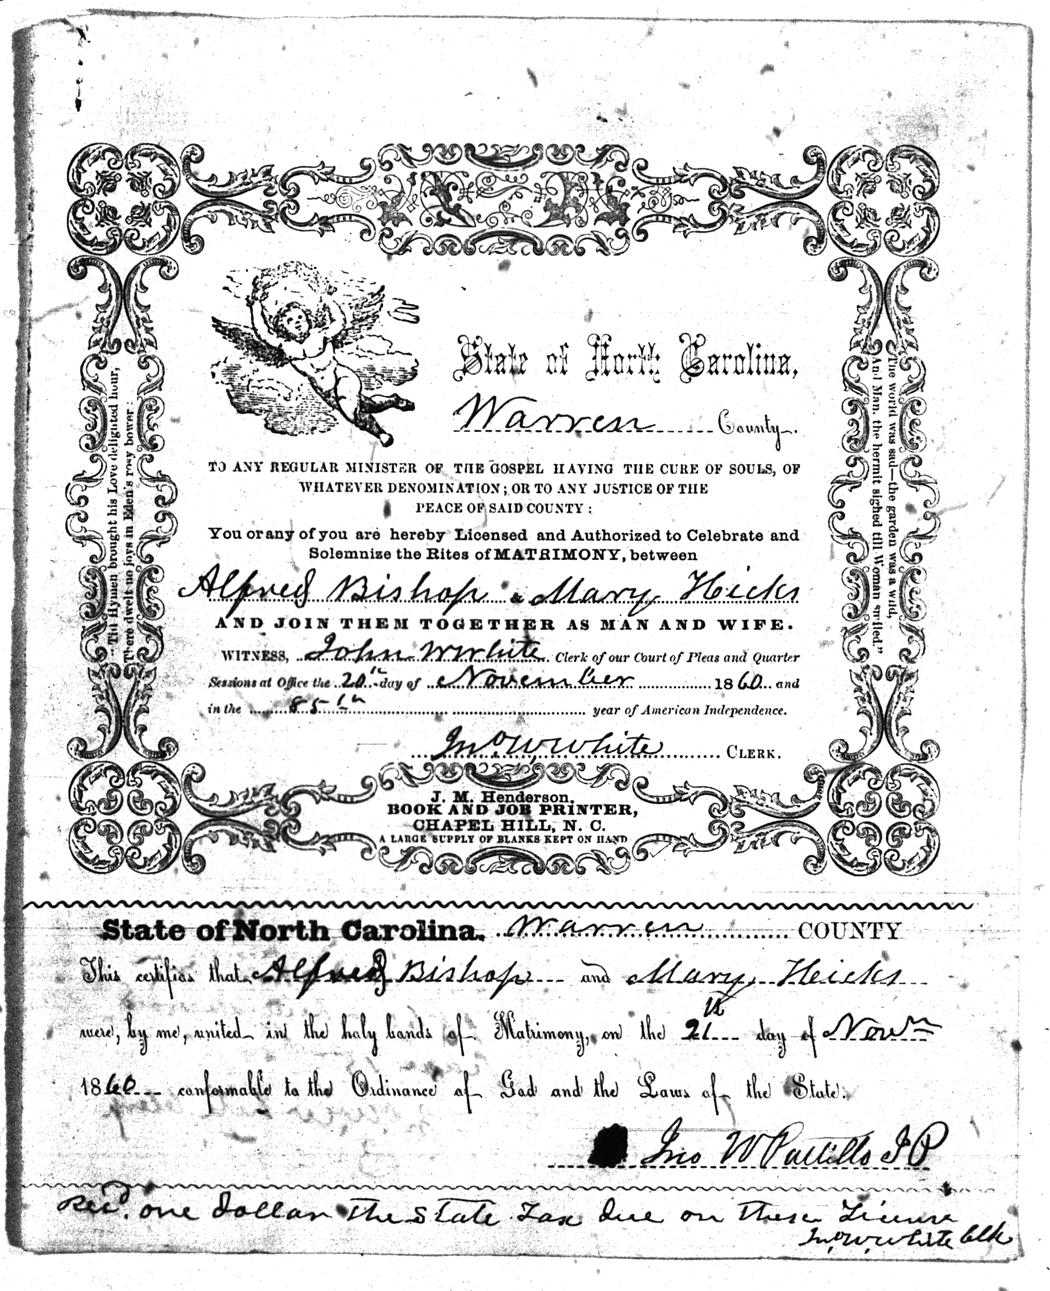 State of North Carolina,
Warren County.
TO ANY REGULAR MINISTER OF THE GOSPEL HAVING THE CURE OF SOULS, OF
WHATEVER DENOMINATION; OR TO ANY JUSTICE OF THE
PEACE OF SAID COUNTY:
You or any of you are hereby Licensed and Authorized to Celebrate and
Solemnize the Rites of MATRIMONY, between
Alfred Bishop & Mary Hicks
AND JOIN THEM TOGETHER AS MAN AND WIFE.
WITNESS, John W White. Clerk of our Court of Pleas and Quarter
Sessions at Office the 20th day of November 1860 and
in the 85th year of American Independence.
Jno W White CLERK.
"Till Hymen brought his Love delighted hour,
There dwelt no joys in Eden's rosy bower:
The world was sad—the garden was a wild,
And Man, the hermit sighed till Woman smiled."
J. M. Henderson,
BOOK AND JOB PRINTER,
CHAPEL HILL, N. C.
A LARGE SUPPLY OF BLANKS KEPT ON HAND
State of North Carolina. Warren COUNTY
This certifies that Alfred Bishop and Mary Hicks
were, by me, united in the holy bands of Matrimony, on the 21th day of Novm
1860 conformable to the Ordinance of God and the Laws of the State.
Jno W Pattillo J P
Recd. one dollar the State Tax due on these License
Jno W. White Clk